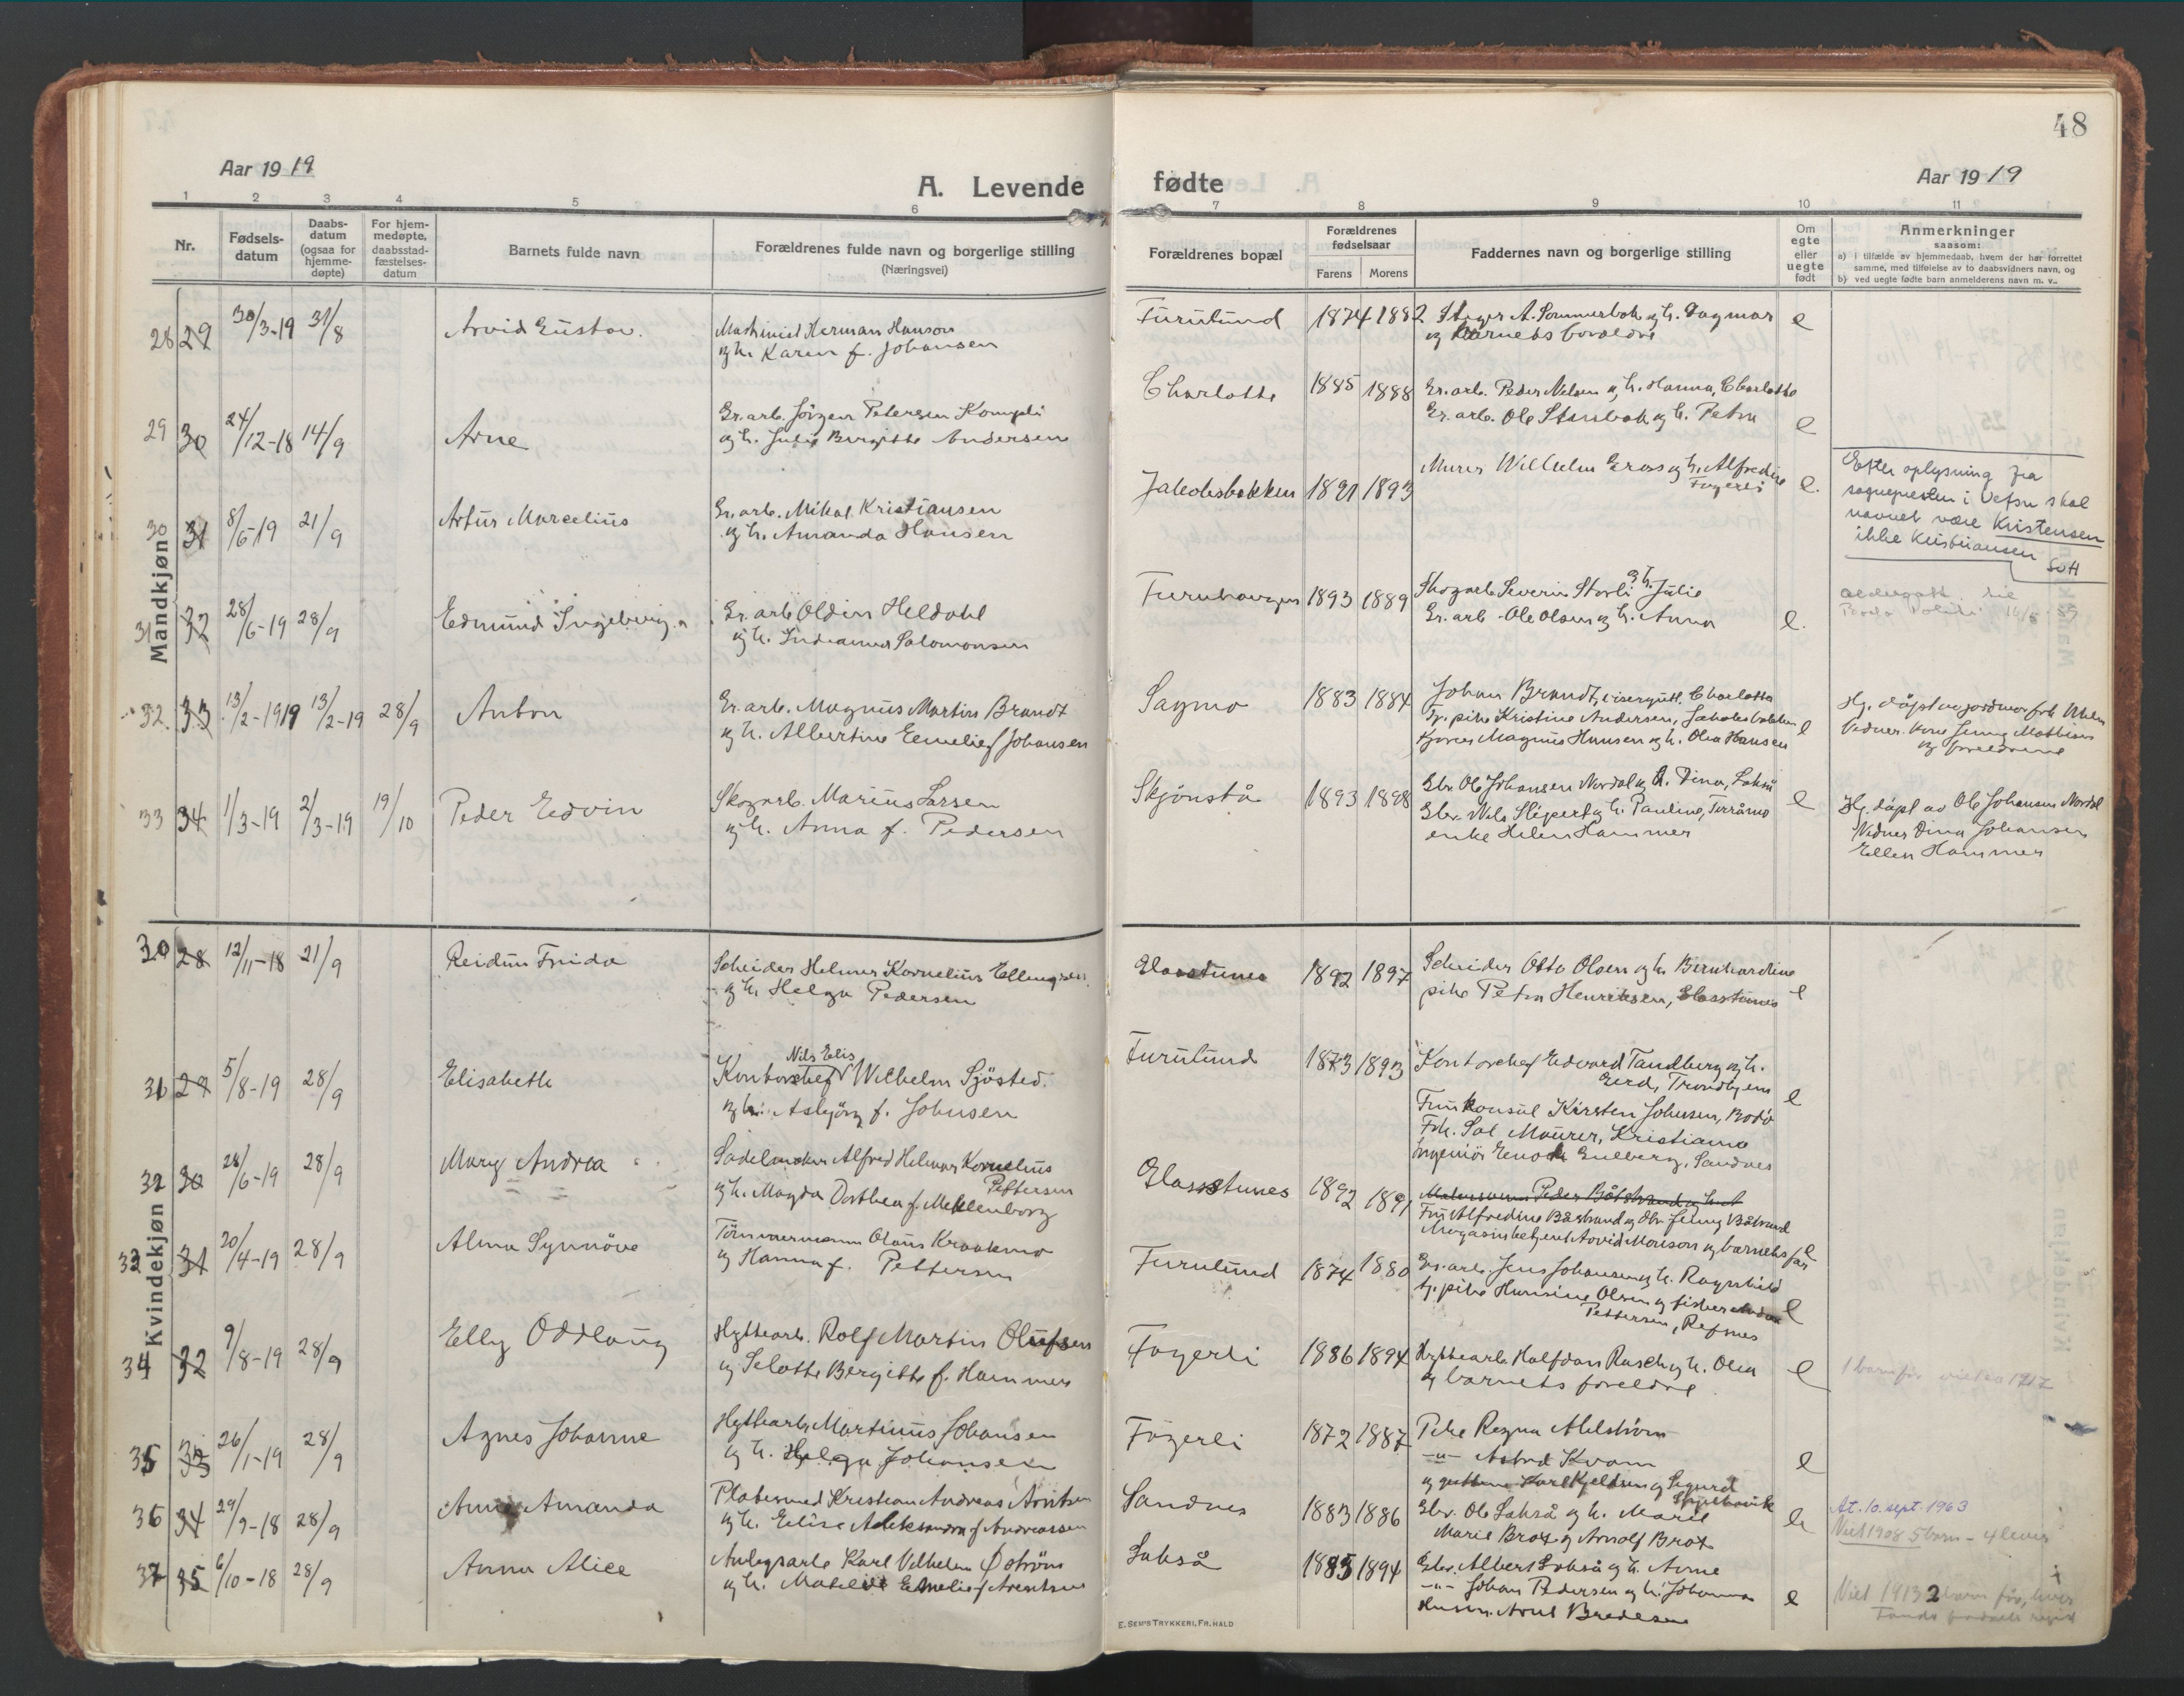 48
Aar 1919
A. Levende
fødte
Aar 1919
1 2 3 4 5 6
7 8 9 10 11
Nr.
Fødsels-
datum
Daabs-
datum
(ogsaa for
hjemme-
døpte)
For hjem-
medøpte,
daabsstad-
fæstelses-
datum
Barnets fulde navn
Forældrenes fulde navn og borgerlige stilling
(Næringsvei)
Forældrenes bopæl
Forældrenes
fødselsaar
Farens Morens
Faddernes navn og borgerlige stilling
Om
egte
eller
uegte
født
Anmerkninger
saasom:
a) i tilfælde av hjemmedaab, hvem der har forrettet
samme, med tilføielse av to daabsvidners navn, og
b) ved uegte fødte barn anmelderens navn m. v..
Mandkjøn
28 29 30/3-19 31/8 Arvid Gustav.
Herman Hanson
og h. Karen f. Johansen
Furulund 1874 1882
Steger A. Sommerbak og h. Dagmar
og barnets foreldre
e
29 30 24/12-18 14/9 Arne
Gr. arb. Jörgen Petersen
og h. Julie Birgitte Andersen
Charlotta 1885 1888
Gr. arb. Peder Nilsen og h. Hanna, Charlotta
Gr. arb. Ole Stenbak og h. Petra
e
30 31 8/6-19 21/9 Artur Marcelius
Gr. arb. Mikal Kristiansen
og h. Amanda Hansen
Jakobsbakken 1891 1893
Murer Wilhelm Gros og h. Alfredine
Fagerli
e.
Efter oplysning fra
sognepresten i Vefsn skal
navnet være Kristensen
ikke Kristiansen
31 32 28/6-19 28/9 Edmund
Gr. arb. Oldin Heldahl
og h. Indianna Salomonsen
Furuhaugen 1893 1889
Skogarb. Severin Storli og h. Julie
Gr. arb. Ole Olsen og h. Anna
e.
32. 33 13/2-1919 13/2-19 28/9 Anton
Gr. arb. Magnus Martin Brandt
og h. Albertine Emelie f Johansen
Sagmo 1883 1884
Johan Brandt, visergutt, Charlotta
Tj. pike Kristine Andersen, Jakobsbakken
Kjører Magnus Hansen og h. Olea Hansen
e
Hj. døpt av jordmor frk
Vidner. Kone Jenny Mathisen
og foreldrene
33 34 1/3-19 2/3-19 19/10 Peder Edvin
Skogarb. Marius Larsen
og h. Anna f. Pedersen
Skjönstå 1893 1898
Gbr. Ole Johansen Nordal og h. Dina, Lakså
Gbr. Nils og h. Pauline, Torråmo
enke Helen Hammer
e
Hj. døpt av Ole Johansen Nordal
Vidner Dina Johansen
Ellen Hammer
Kvindekjøn
30 28 12/11-18 21/9 Reidun Frida
Scheider Helmer Kornelius Ellingsen
og h. Helga Pedersen
Glasstunes 1892 1897
Scheider Otto Olsen og h. Bernhardine
pike Petra Henriksen, Glasstunes
e
31 29 5/8-19 28/9 Elisabeth
Nils Elis
Kontorchef Wilhelm Sjösted.
og h. Asbjörg f. Johnsen
Furulund 1873 1893
Kontorchef Edvard Tandberg og h.
Gerd, Trondhjem
Fru konsul Kirsten Johnsen, Bodø
Frk. Sol Maurer, Kristiania
Ingeniör Enock Gulberg, Sandnes
e
32 30 28/6-19 28/9 Mary Andrea
Sadelmaker Alfred Helmer Kornelius
Pettersen
og h. Magda Dorthea f. Meklenborg
Glasstunes 1892 1891
Fru Alfredine Båtstrand og Jenny Båtstrand
Magasinbetjent Arvid Monson og barnets far
e
33 31 20/4-19 28/9 Alma Synnöve
Tömmermann Olaus Kraakmo
og Hanna f. Pettersen
Furulund 1874 1880
Gr. arb. Jens Johansen og h. Ragnhild
tj. pike Hansine Olsen og fisker
Pettersen, Refsnes
e
34 32 9/8-19 28/9 Elly Oddlaug
Hyttearb. Rolf Martin Olufsen
og Selotte Bergitte f. Hammer
Fagerli 1886 1894
Hyttearb. Halfdan Rasch og h. Olea
og barnets foreldre
e
1 barn før viet 1917
35 33 26/1-19 28/9 Agnes Johanne
Hyttearb. Martinus Johansen
og h. Helga Johansen
Fagerli 1872 1887
Pike Ragna Ahlström
-"- Astrid Kvam
og guttene Karl Kjeldsen og Sigurd
e
36 34 29/9-18 28/9 Anna Amanda
Platesmed Kristian Andreas Arntsen
og h. Elise Aleksandra f Andreassen
Sandnes 1883 1886
Gbr. Ole Lakså og h. Marie
Marie Brox og Arnolf Brox
e
At. 10. sept. 1963
Viet 1908 5 barn - 4 lever
37 35 6/10-18 28/9 Anna Alice
Anlegsarb Karl Vilhelm Öström
og h. Matilde Emelie f Arentsen
Lakså 1885 1894
Gbr. Albert Lakså og h. Anne
-"- Johan Pedersen og h. Johanna
Arnt Bredesen
e
Viet 1913 2 barn før, lever
E. SEM'S TRYKKERI, FR.HALD